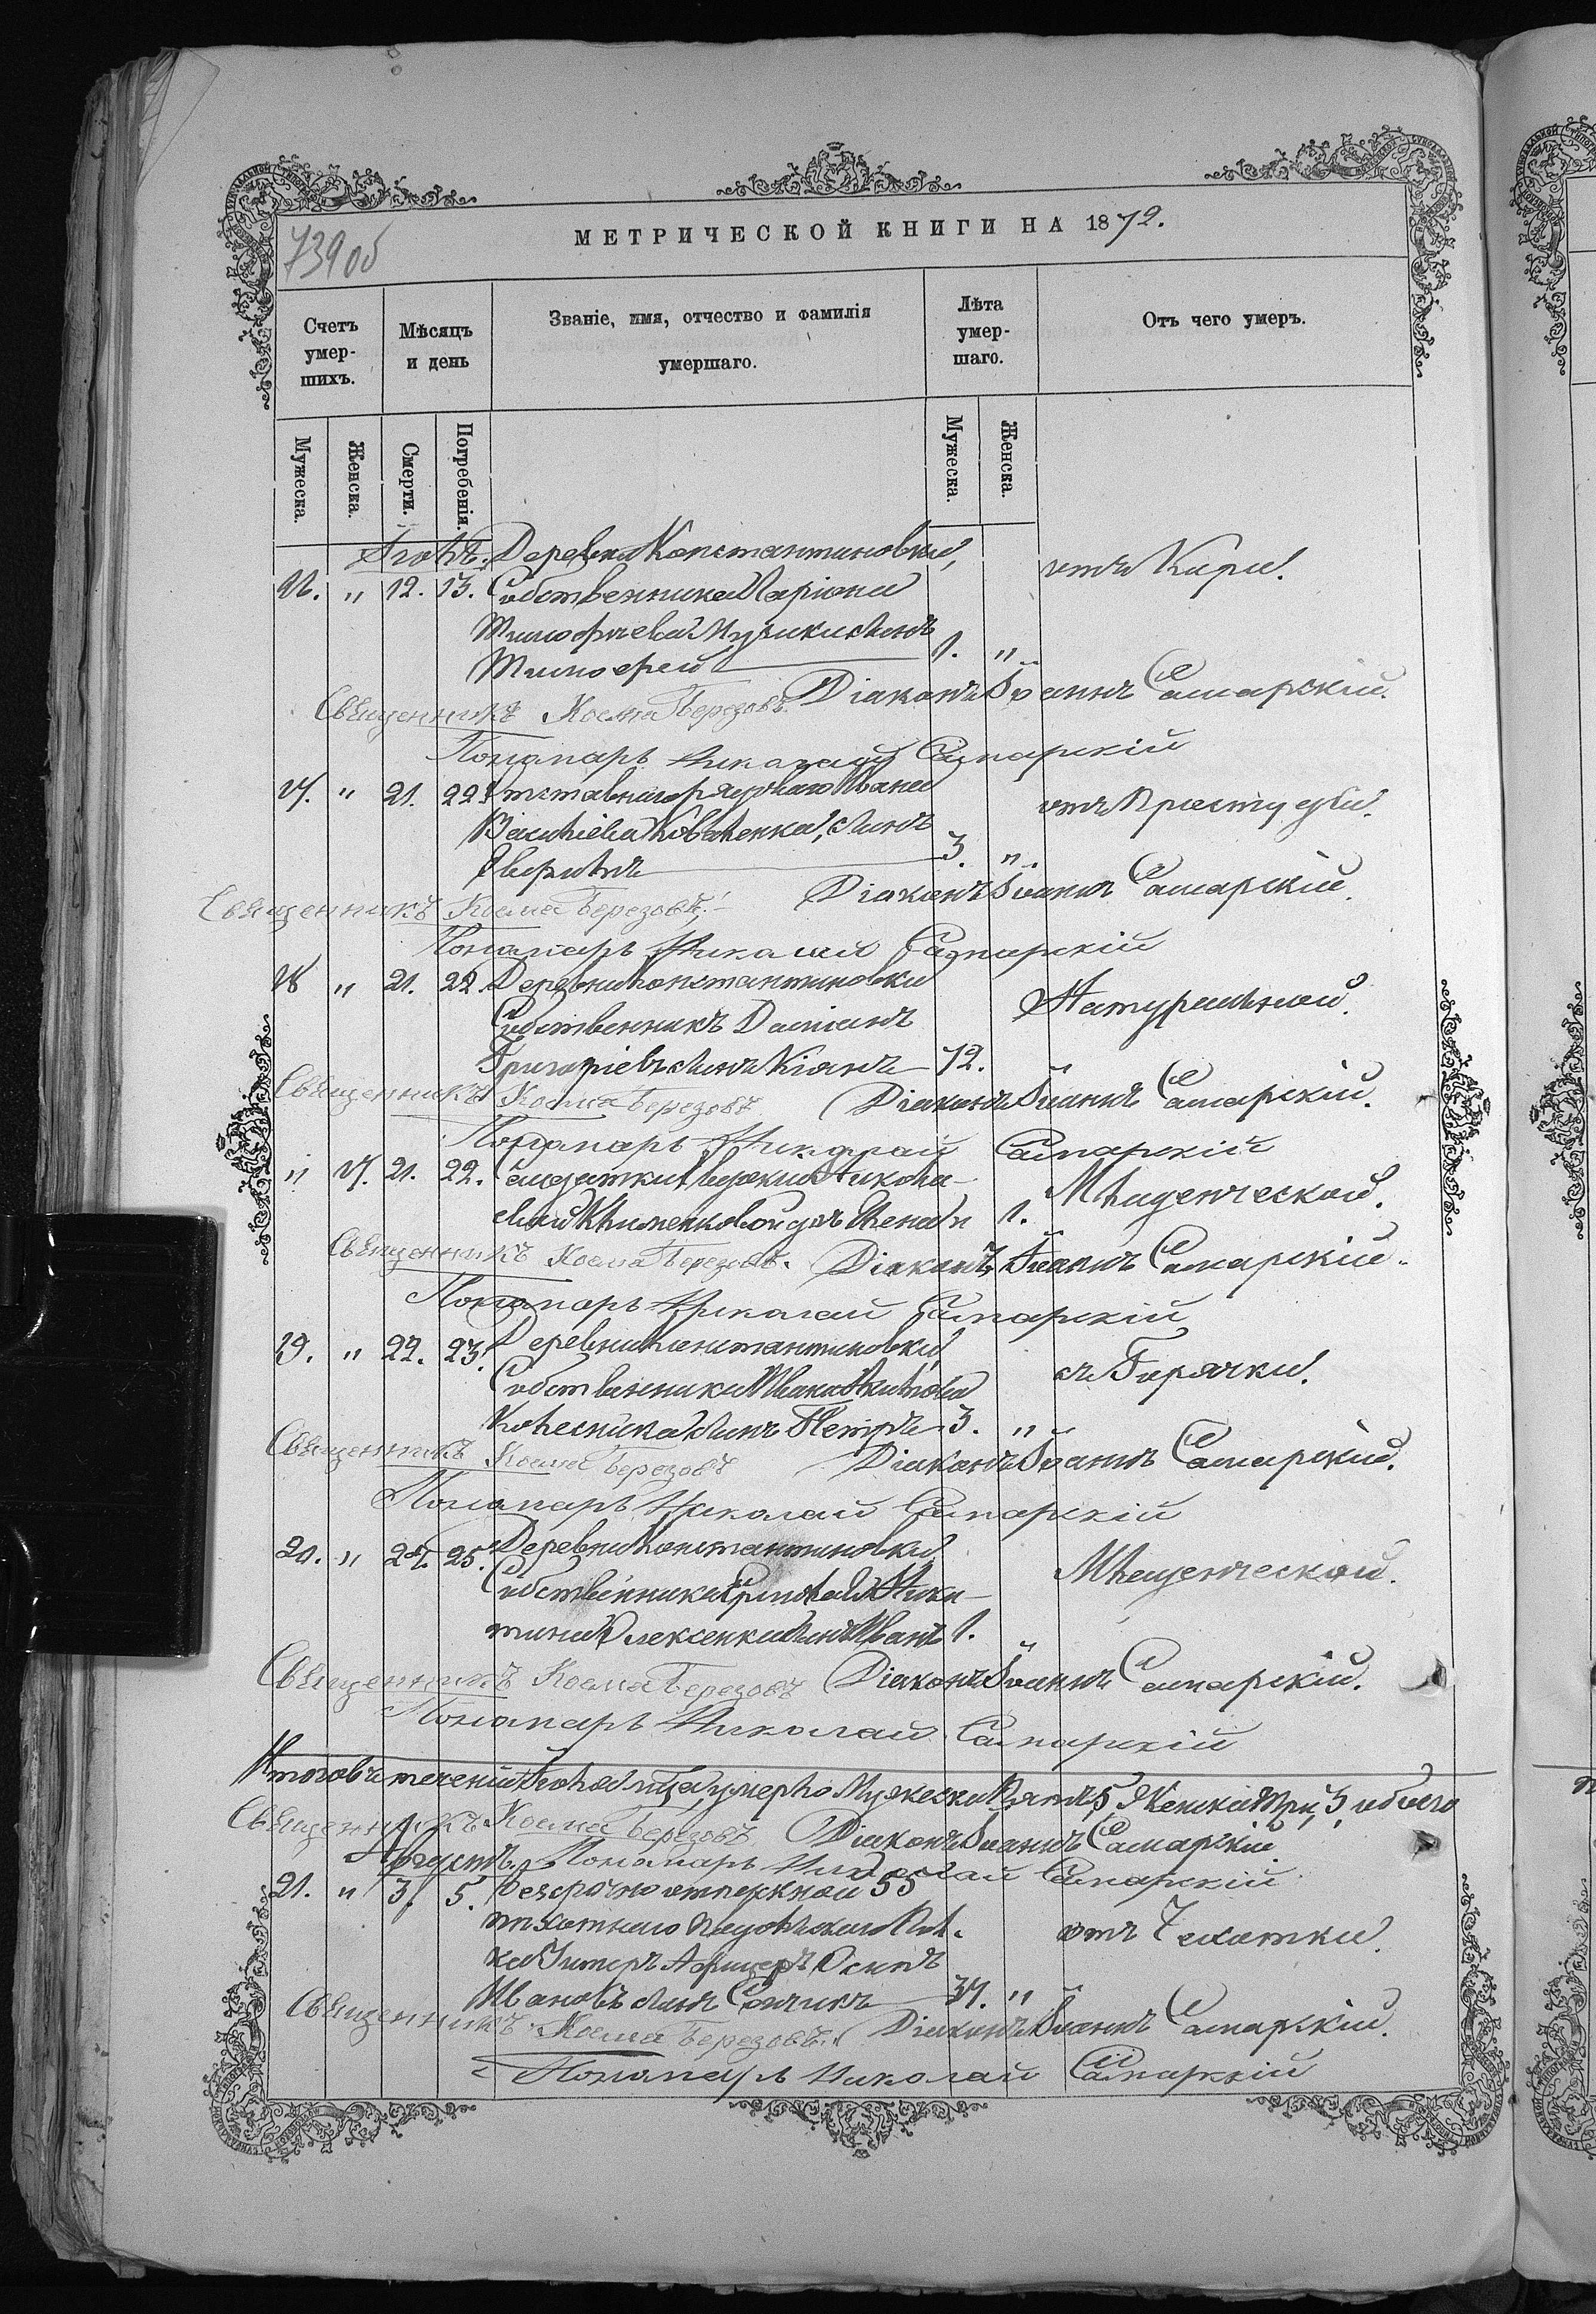 МЕТРИЧЕСКОЙ КНИГИ НА 1872.
739 об
Счетъ умер- шихъ.
Мѣсяцъ и день
Званіе, имя, отчество и фамилія умершаго.
Лѣта умер- шаго.
Отъ чего умеръ.
Мужеска. Женска. Смерти. Погребенія. Мужеска. Женска.
Іюль. Деревни Константиновки,
16. " 12. 13. Собственника Ларіона отъ Кори.
Тимофѣева сынъ
Тимофей 1. "
Священникъ Косма Березовъ. Діаконъ Іоаннъ Самарскій.
Пономарь Николай Самарскій
17. " 21. 22. Отставнаго рядоваго Ивана отъ Простуды.
Васильева Коваленка, сынъ
3. "
Священникъ Косма Березовъ. Діаконъ Іоаннъ Самарскій.
Пономарь Николай Самарскій
18 " 21. 22. Деревни Константиновки Натуральной.
Собственникъ Даміанъ
Григоріевъ сынъ Кіянъ 72. "
Священникъ Косма Березовъ Діаконъ Іоаннъ Самарскій.
Пономарь Николай Самарскій
" 17. 21. 22. Солдатки Николае- Младенческой.
вой Клименковой дочь Елена " 1.
Священникъ Косма Березовъ. Діаконъ Іоаннъ Самарскій.
Пономарь Николай Самарскій
19. " 22. 23. Деревни Константиновки съ Горячки.
Собственника Ивана
Колесника сынъ Петръ 3. "
Священникъ Косма Березовъ Діаконъ Іоаннъ Самарскій.
Пономарь Николай Самарскій
20. " 24. 25. Деревни Константиновки Младенческой.
Собственника Ермолая Ники-
тина Алексенка сынъ Иванъ 1. "
Священникъ Косма Березовъ Діаконъ Іоаннъ Самарскій.
Пономарь Николай Самарскій
Итого въ теченіи Іюля м-ца умерло Мужеска Пять 5, Женска Три, 3 обоего
Священникъ Косма Березовъ. Діаконъ Іоаннъ Самарскій.
Августъ. Пономарь Николай Самарскій
21. " 3. 5. Безсрочно отпускной 55
пѣхотнаго Подольскаго Пол- отъ Чахотки.
ка Унтеръ Афицеръ Осипъ
Ивановъ сынъ 37. "
Священникъ Косма Березовъ. Діаконъ Іоаннъ Самарскій.
Пономарь Николай Самарскій